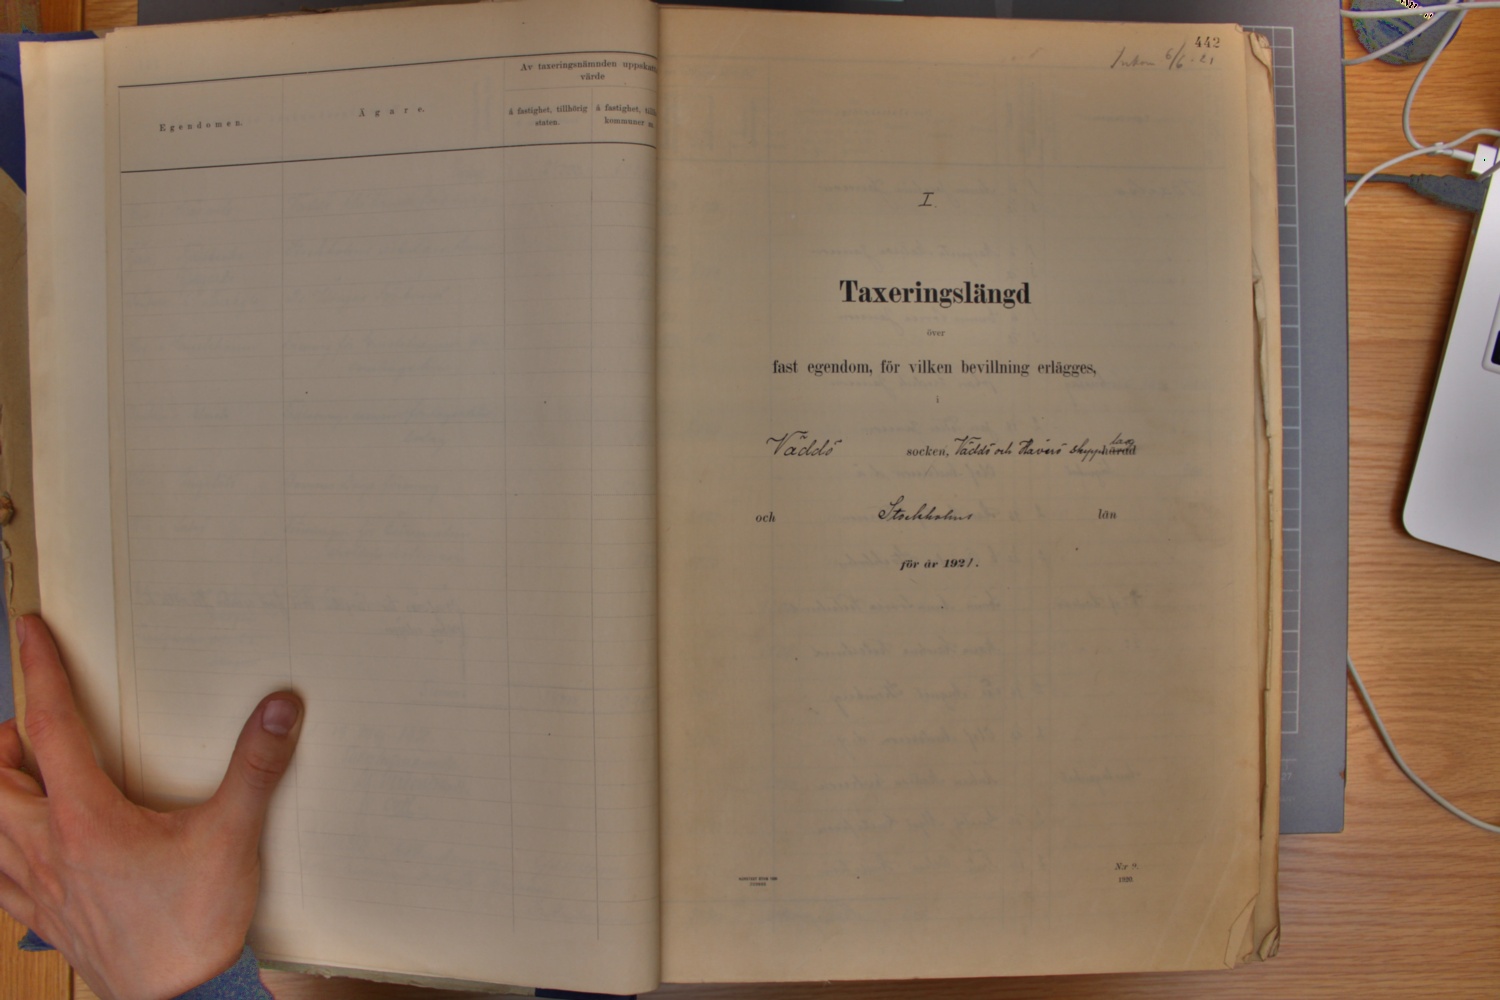 Av taxeringsnämnden uppskat
värde
Egendomen.
Ägare.
å fastighet, tillhörig
staten.
å fastighet, till
kommuner m.
442
Inkom 6/6 21
I
Taxeringslängd
över
fast egendom, för vilken bevillning erlägges,
i
Väddö socken, Väddö och Häverö skepp härad lag
och Stockholms län
för år 1921.
N:r 9.
1920.